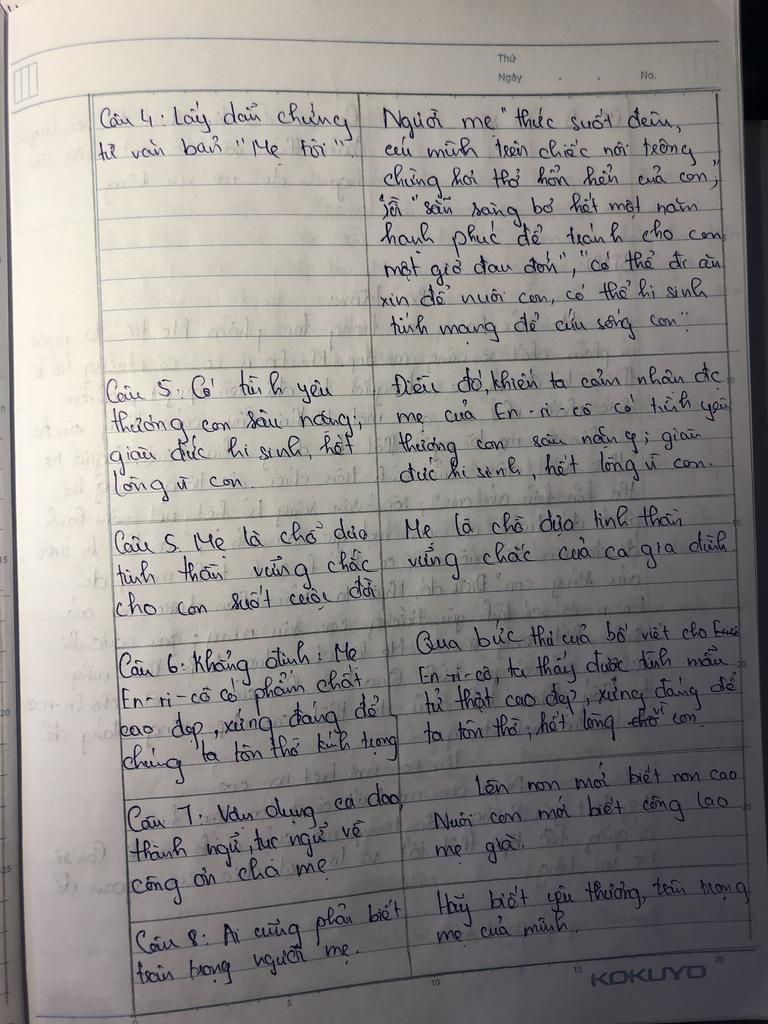 Thứ
Ngày . . No.
Câu 4: Lấy dẫn chứng
từ văn bản "Mẹ tôi".
Người mẹ "thức suốt đêm,
cúi mình trên chiếc nôi trông
chừng hơi thở hổn hển của con",
rồi "sẵn sàng bỏ hết một năm
hạnh phúc để tránh cho con
một giờ đau đớn", "có thể đi ăn
xin để nuôi con, có thể hi sinh
tính mạng để cứu sống con".
Câu 5: Có tình yêu
thương con sâu nặng;
giàu đức hi sinh, hết
lòng vì con.
Điều đó, khiến ta cảm nhận đc
mẹ của En-ri-cô có tình yêu
thương con sâu nặng; giàu
đức hi sinh, hết lòng vì con.
Câu 5. Mẹ là chỗ dựa
tinh thần vững chắc
cho con suốt cuộc đời
Mẹ là chỗ dựa tinh thần
vững chắc của cả gia đình
Câu 6: Khẳng định: Mẹ
En-ri-cô có phẩm chất
cao đẹp, xứng đáng để
chúng ta tôn thờ kính trọng
Qua bức thư của bố viết cho
En-ri-cô, ta thấy được tình mẫu
tử thật cao đẹp, xứng đáng để
ta tôn thờ, hết lòng vì con.
Câu 7: Vận dụng ca dao,
thành ngữ, tục ngữ về
công ơn cha mẹ
Lên non mới biết non cao
Nuôi con mới biết công lao
mẹ già.
Câu 8: Ai cũng phải biết
trân trọng người mẹ.
Hãy biết yêu thương, trân trọng
mẹ của mình.
5 10 15 20
KOKUYO